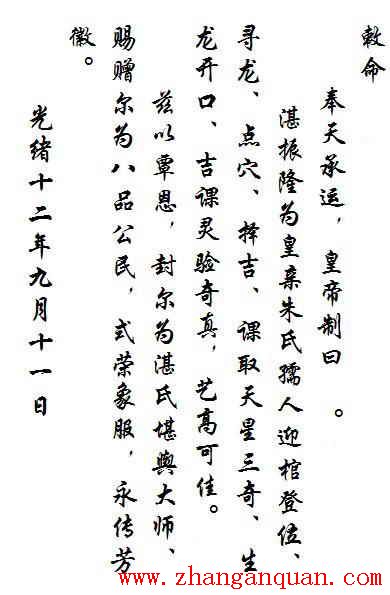 敕命
奉天承运，皇帝制曰　。
湛振隆为皇亲朱氏孺人迎棺登位、
寻龙、点穴、择吉、课取天星三奇、生
龙开口、吉课灵验奇真，艺高可佳。
兹以覃恩，封尔为湛氏堪舆大师、
赐赠尔为八品公民，式荣象服，永传芳
徽。
光绪十二年九月十一日
www.zhanganquan.com